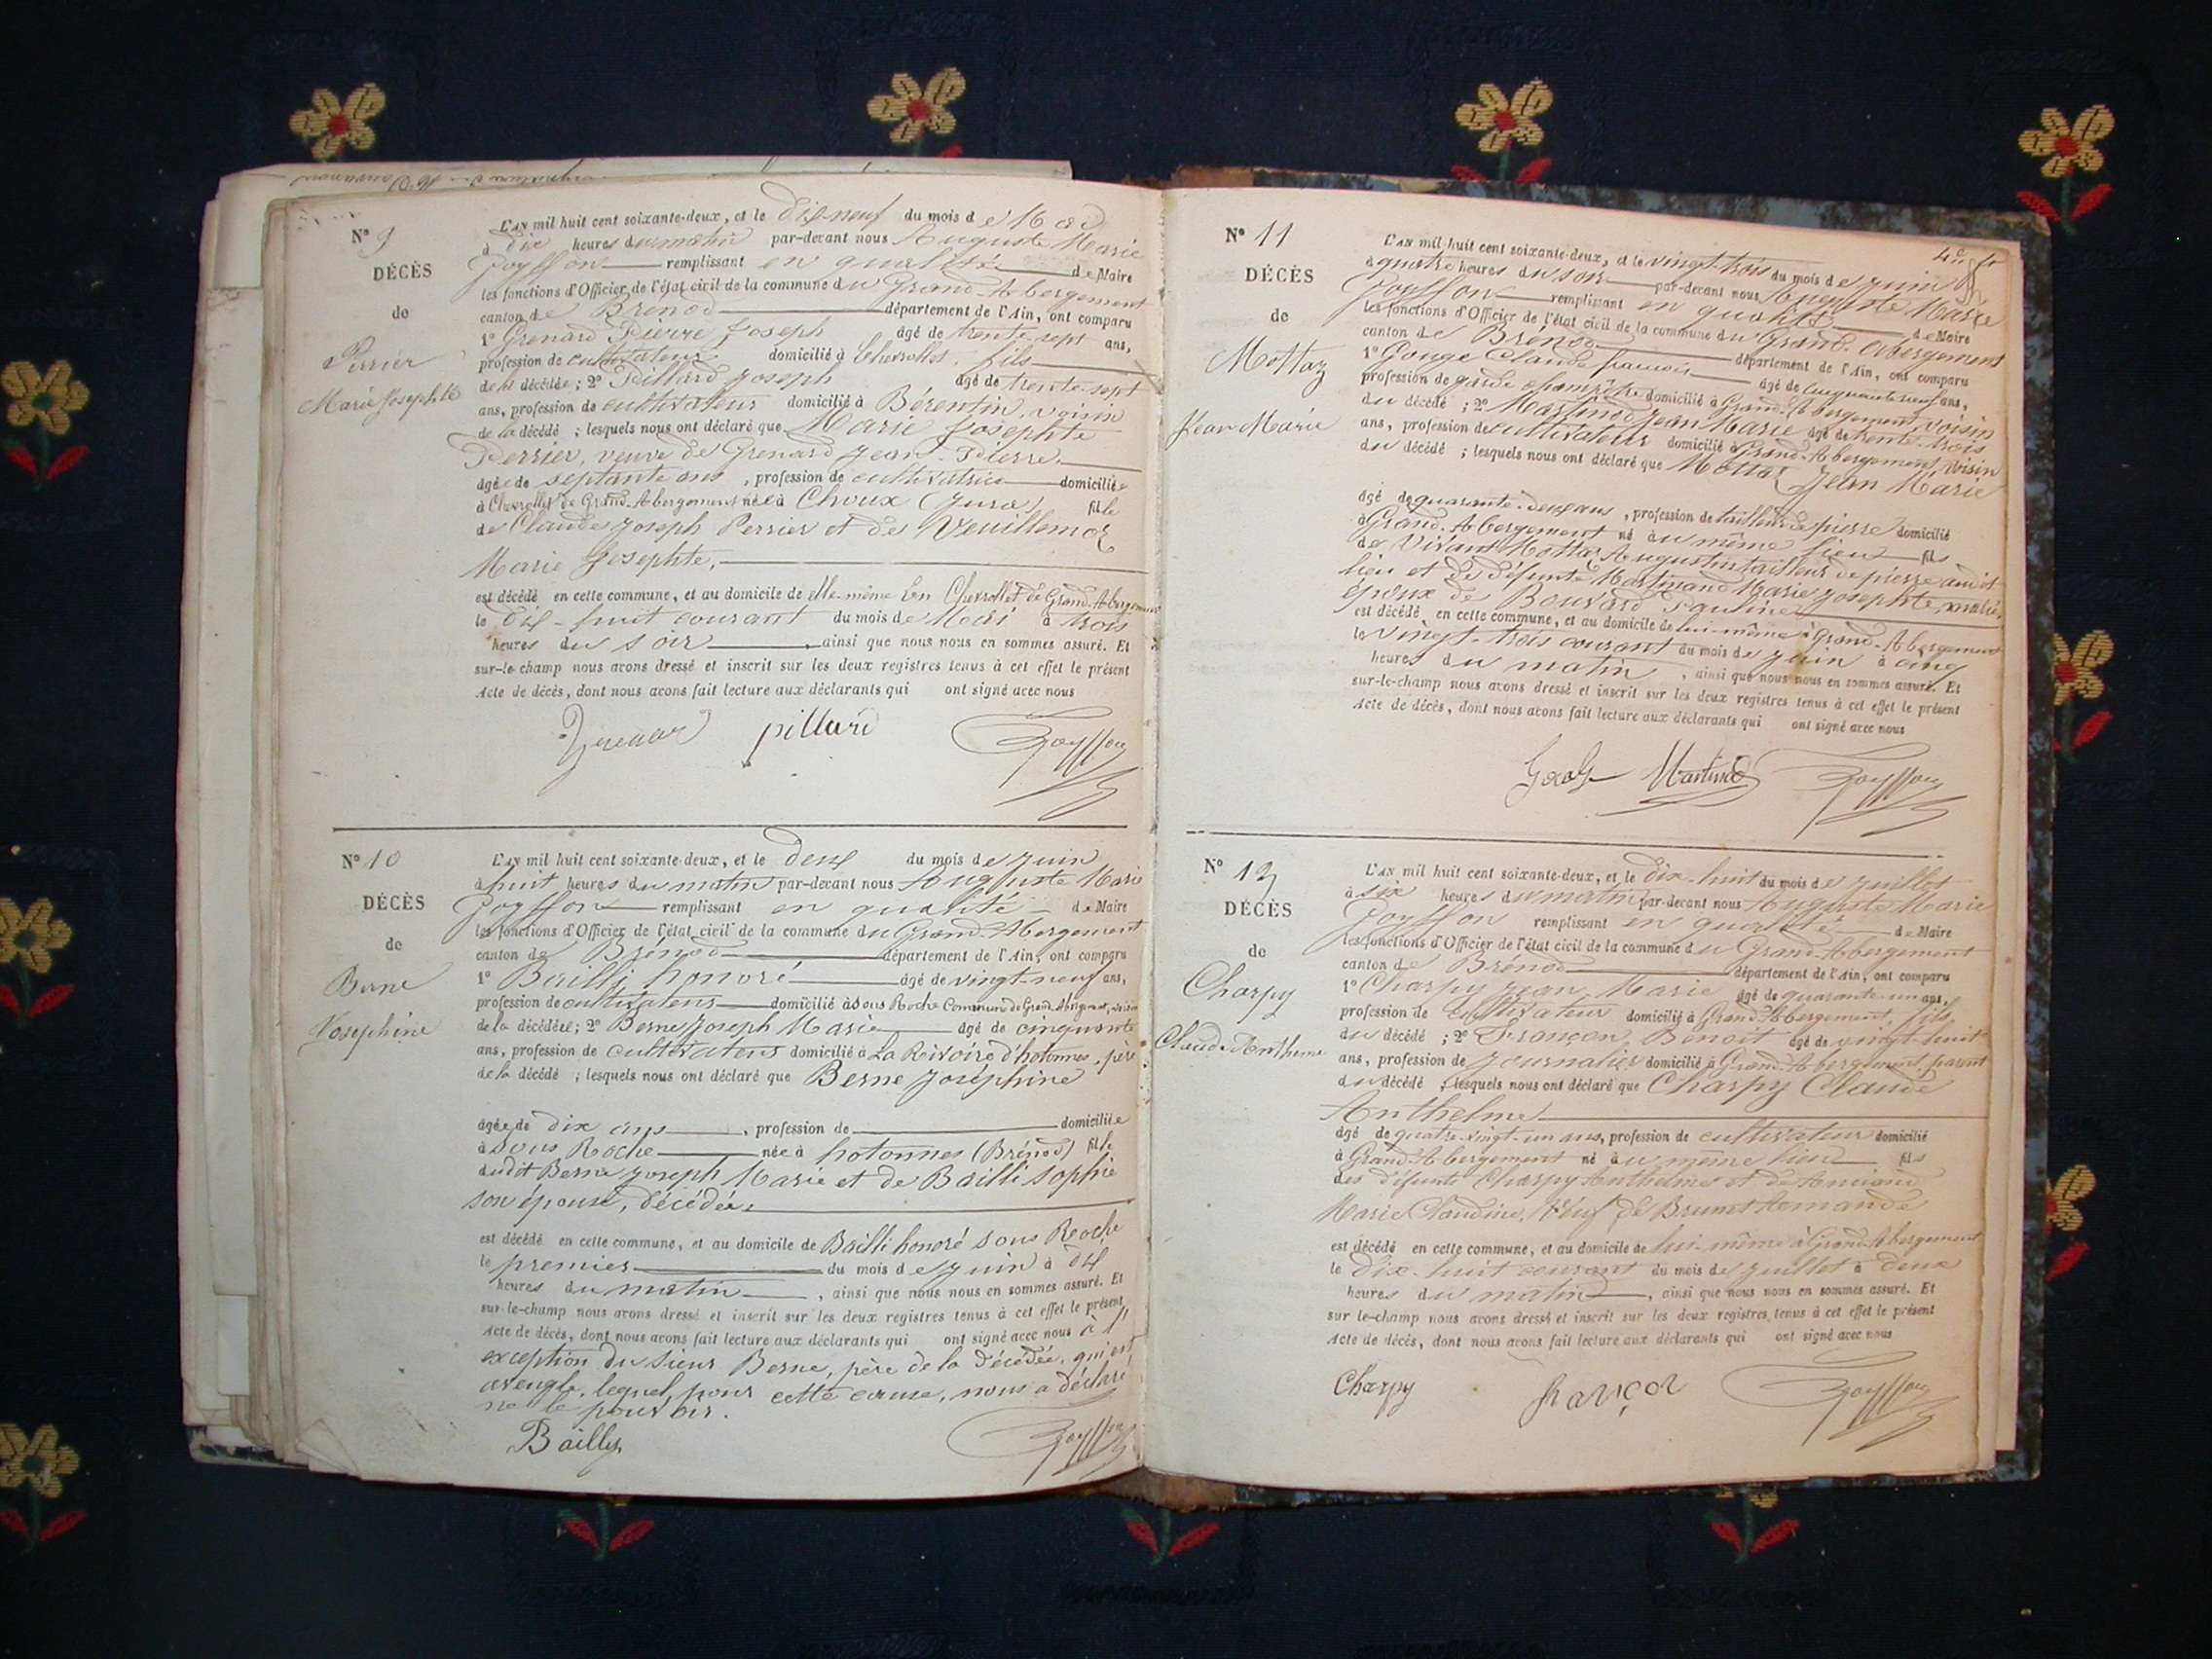 N° 9
DÉCÈS
de
Perrier
Marie Josephte
L'AN mil huit cent soixante-deux, et le dix neuf du mois de Mai
à dix heures du matin par-devant nous Auguste Marie
Joyffon remplissant en qualité de Maire
les fonctions d'Officier de l'état civil de la commune du Grand-Abergement
canton de Brénod département de l'Ain, ont comparu
1° Grenard Pierre Joseph âgé de trente-sept ans,
profession de cultivateur domicilié à Chevrollet, fils
de la décédée ; 2° Pillard Joseph âgé de trente-sept
ans, profession de cultivateur domicilié à Bérentin, voisin
de la décédé ; lesquels nous ont déclaré que Marie Josephte
Perrier, veuve de Grenard Jean-Pierre,
âgée de septante ans, profession de cultivatrice domiciliée
à Chevrollet de Grand-Abergement née à Choux (Jura) fille
de Claude Joseph Perrier et de Veuillemot
Marie Josephte,
est décédé en cette commune, et au domicile de elle-même en Chevrollet de Grand-Abergement
le dix-huit courant du mois de Mai à trois
heures du soir, ainsi que nous nous en sommes assuré. Et
sur-le-champ nous avons dressé et inscrit sur les deux registres tenus à cet effet le présent
Acte de décès, dont nous avons fait lecture aux déclarants qui ont signé avec nous
Grenard pillard Joyffon
N° 10
DÉCÈS
de
Berne
Josephine
L'AN mil huit cent soixante-deux, et le deux du mois de Juin
à huit heures du matin par-devant nous Auguste Marie
Joyffon remplissant en qualité de Maire
les fonctions d'Officier de l'état civil de la commune du Grand-Abergement
canton de Brénod département de l'Ain, ont comparu
1° Bailli honoré âgé de vingt-neuf ans,
profession de cultivateur domicilié à Sous Roche Commune de Grand-Abergement, voisin
de la décédée ; 2° Berne Joseph Marie âgé de cinquante
ans, profession de cultivateur domicilié à La Rivoire d'hotonnes, père
de la décédé ; lesquels nous ont déclaré que Berne Joséphine
âgée de dix ans, profession de domiciliée
à Sous Roche née à hotonnes (Brénod) fille
dudit Berne Joseph Marie et de Bailli Sophie
son épouse, décédée,
est décédé en cette commune, et au domicile de Bailli honoré Sous Roche
le premier du mois de Juin à dix
heures du matin, ainsi que nous nous en sommes assuré. Et
sur-le-champ nous avons dressé et inscrit sur les deux registres tenus à cet effet le présent
Acte de décès, dont nous avons fait lecture aux déclarants qui ont signé avec nous à l'
exception du sieur Berne, père de la décédée, qui est
aveugle, lequel, pour cette cause, nous a déclaré
ne le pouvoir.
Bailly Joyffon
N° 11
DÉCÈS
de
Mottaz
Jean Marie
L'AN mil huit cent soixante-deux, et le vingt-trois du mois de Juin
à quatre heures du soir par-devant nous Auguste Marie
Joyffon remplissant en qualité de Maire
les fonctions d'Officier de l'état civil de la commune du Grand-Abergement
canton de Brénod département de l'Ain, ont comparu
1° Gouge Claude françois âgé de cinquante neuf ans,
profession de garde champêtre domicilié à Grand-Abergement, voisin
du décédé ; 2° Martinod Jean Marie âgé de trente-trois
ans, profession de cultivateur domicilié à Grand-Abergement, voisin
du décédé ; lesquels nous ont déclaré que Mottaz Jean Marie
âgé de quarante-deux ans, profession de tailleur de pierre domicilié
à Grand-Abergement né au même lieu fils
de Vivant Mottaz Augustin tailleur de pierre audit
lieu et de défunte Martinand Marie Josephte
époux de Bouvard Pauline
est décédé en cette commune, et au domicile de lui-même à Grand-Abergement
le vingt-trois courant du mois de Juin à cinq
heures du matin, ainsi que nous nous en sommes assuré. Et
sur-le-champ nous avons dressé et inscrit sur les deux registres tenus à cet effet le présent
Acte de décès, dont nous avons fait lecture aux déclarants qui ont signé avec nous
Martinod Joyffon
N° 12
DÉCÈS
de
Charpy
Claude Anthelme
L'AN mil huit cent soixante-deux, et le dix-huit du mois de Juillet
à six heures du matin par-devant nous Auguste Marie
Joyffon remplissant en qualité de Maire
les fonctions d'Officier de l'état civil de la commune du Grand-Abergement
canton de Brénod département de l'Ain, ont comparu
1° Charpy Jean Marie âgé de quarante-un ans,
profession de cultivateur domicilié à Grand-Abergement, fils
du décédé ; 2° Françon Benoit âgé de vingt-huit
ans, profession de Journalier domicilié à Grand-Abergement, parent
du décédé, lesquels nous ont déclaré que Charpy Claude
Anthelme
âgé de quatre-vingt-un ans, profession de cultivateur domicilié
à Grand-Abergement né au même lieu fils
des défunts Charpy Anthelme et de Anciand
Marie Claudine, Veuf de Brunet Armande
est décédé en cette commune, et au domicile de lui-même à Grand-Abergement
le Dix-huit courant du mois de Juillet à deux
heures du matin, ainsi que nous nous en sommes assuré. Et
sur-le-champ nous avons dressé et inscrit sur les deux registres tenus à cet effet le présent
Acte de décès, dont nous avons fait lecture aux déclarants qui ont signé avec nous
Charpy françon Joyffon